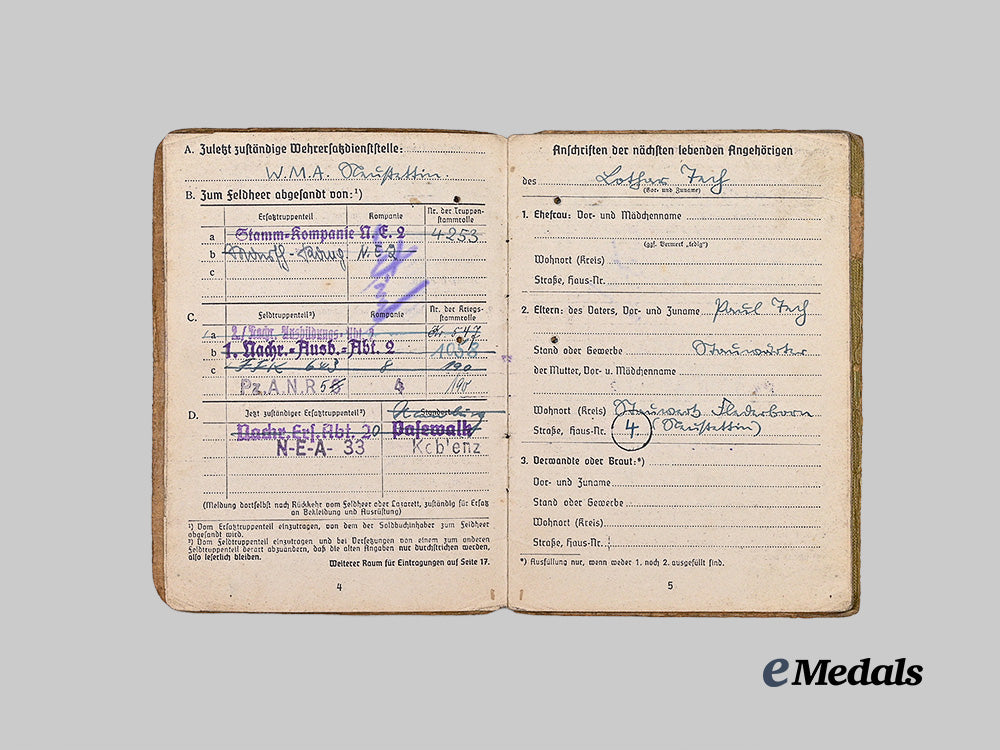 A. Zuletzt zuständige Wehrersatzdienststelle:
W.M.A. Neustettin.
B. Zum Feldheer abgesandt von:¹)
Ersatztruppenteil Kompanie Nr. der Truppenstammrolle
a Stamm-Kompanie N.E. 2 4253
b N.E. 2
c
C. Feldtruppenteil²) Kompanie Nr. der Kriegsstammrolle
a 2./Nachr. Ausbildungs-Abt. 2 547
b 1. Nachr.-Ausb.-Abt. 2 1058
c 8 190
Pz.A.N.R 4 190
D. Jetzt zuständiger Ersatztruppenteil²) Standort
Nachr.Ers.Abt. 20 Pasewalk
N-E-A- 33 Koblenz
(Meldung dortselbst nach Rückkehr vom Feldheer oder Lazarett, zuständig für Ersatz
an Bekleidung und Ausrüstung)
¹) Vom Ersatztruppenteil einzutragen, von dem der Soldbuchinhaber zum Feldheer
abgesandt wird.
²) Vom Feldtruppenteil einzutragen und bei Versetzungen von einem zum anderen
Feldtruppenteil derart abzuändern, daß die alten Angaben nur durchstrichen werden,
also leserlich bleiben.
Weiterer Raum für Eintragungen auf Seite 17.
4
Anschriften der nächsten lebenden Angehörigen
des Lothar Zech
(Vor- und Zuname)
1. Ehefrau: Vor- und Mädchenname
(ggf. Vermerk „ledig“)
Wohnort (Kreis)
Straße, Haus-Nr.
2. Eltern: des Vaters, Vor- und Zuname Paul Zech
Stand oder Gewerbe Stauwärter
der Mutter, Vor- u. Mädchenname
Wohnort (Kreis) Stauwerk Flederborn
Straße, Haus-Nr. 4 (Neustettin)
3. Verwandte oder Braut:*)
Vor- und Zuname
Stand oder Gewerbe
Wohnort (Kreis)
Straße, Haus-Nr.
*) Ausfüllung nur, wenn weder 1. noch 2. ausgefüllt sind.
5
eMedals